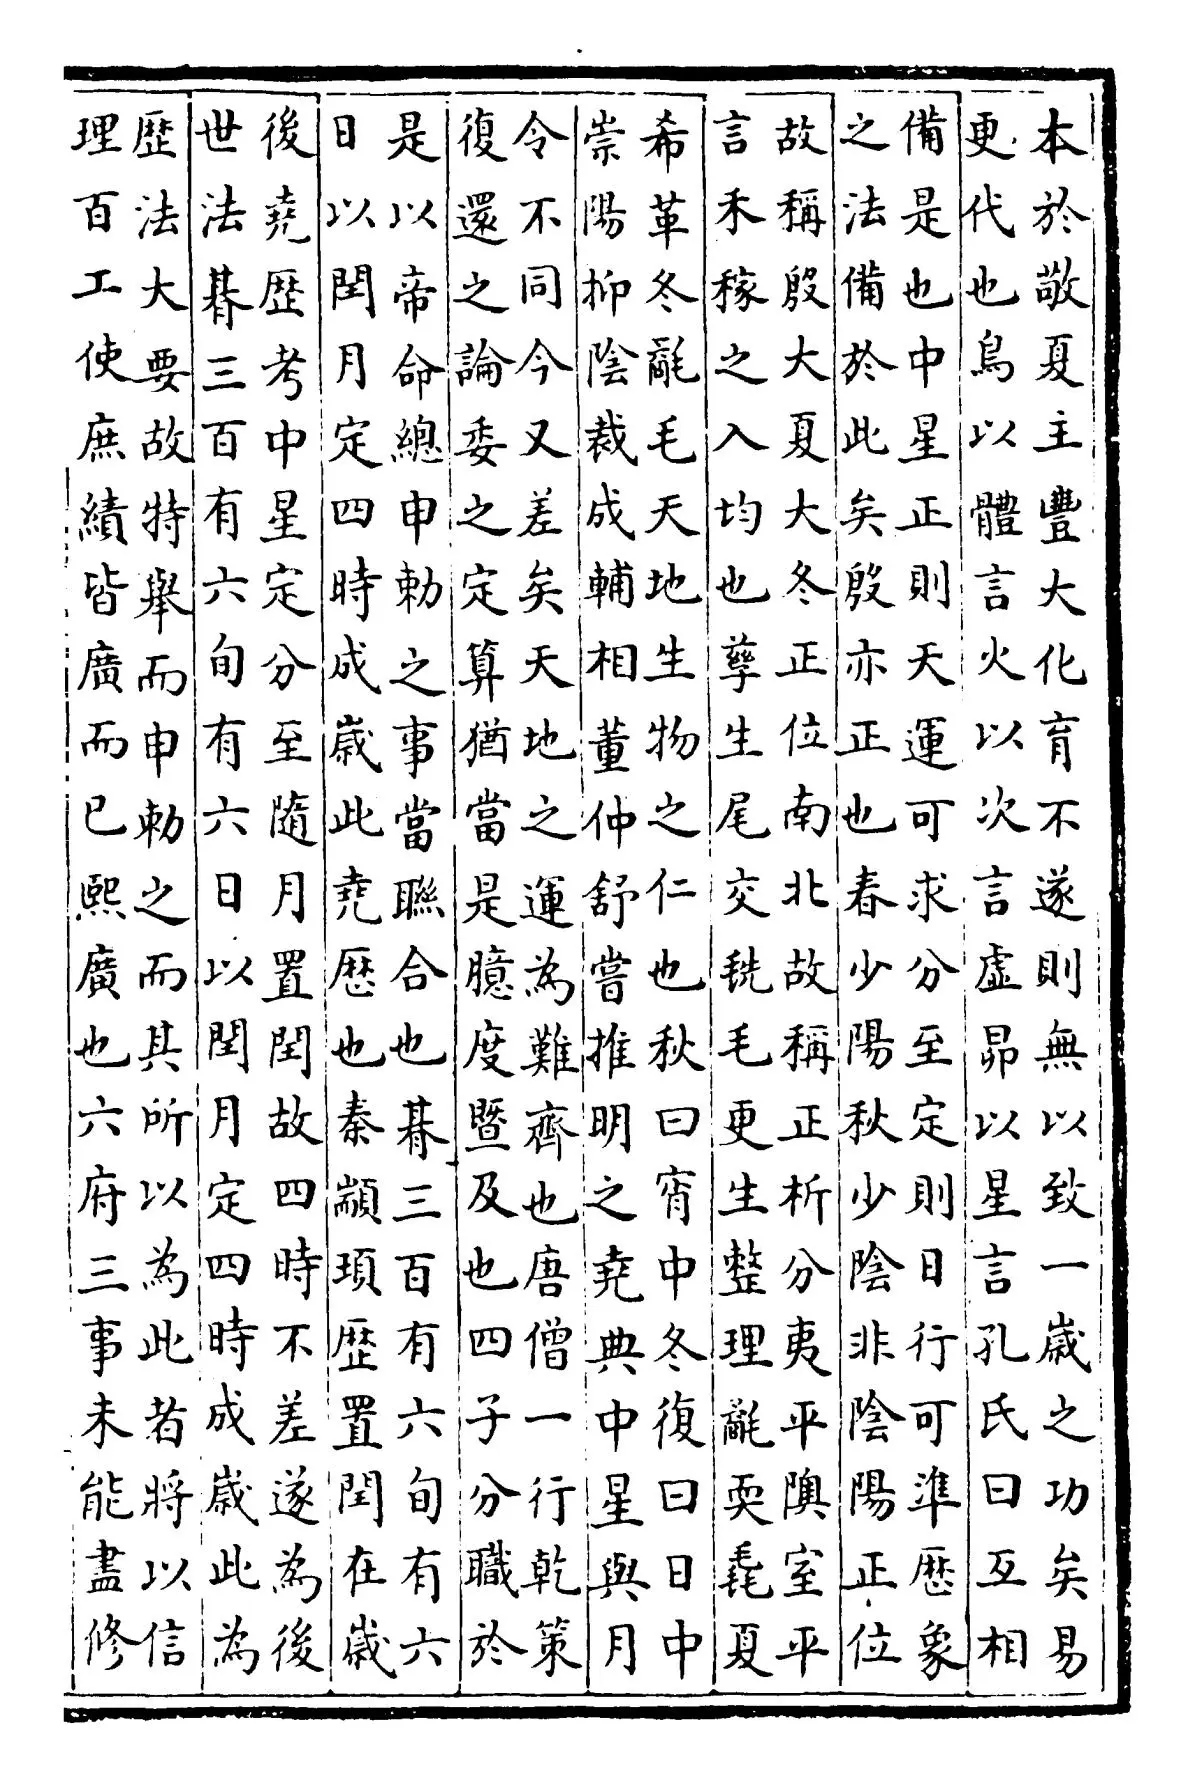 本於敬夏主豐大化育不遂則無以致一歲之功矣易
更代也鳥以體言火以次言虛昴以星言孔氏曰互相
備是也中星正則天運可求分至定則日行可準歴象
之法備於此矣殷亦正也春少陽秋少陰非陰陽正位
故稱殷大夏大冬正位南北故稱正析分夷平隩室平
言禾稼之入均也孳生尾交毨毛更生整理氄耎毳夏
希革冬氄毛天地生物之仁也秋曰宵中冬復曰日中
崇陽抑陰裁成輔相董仲舒嘗推明之堯典中星與月
令不同今又差矣天地之運為難齊也唐僧一行乾策
復還之論委之定算猶當是臆度暨及也四子分職於
是以帝命總申勅之事當聯合也朞三百有六旬有六
日以閏月定四時成歲此堯歴也秦顓頊歴置閏在歲
後堯歴考中星定分至隨月置閏故四時不差遂為後
世法朞三百有六旬有六日以閏月定四時成歲此為
歴法大要故特舉而申勅之而其所以為此者將以信
理百工使庶績皆廣而已熙廣也六府三事未能盡修